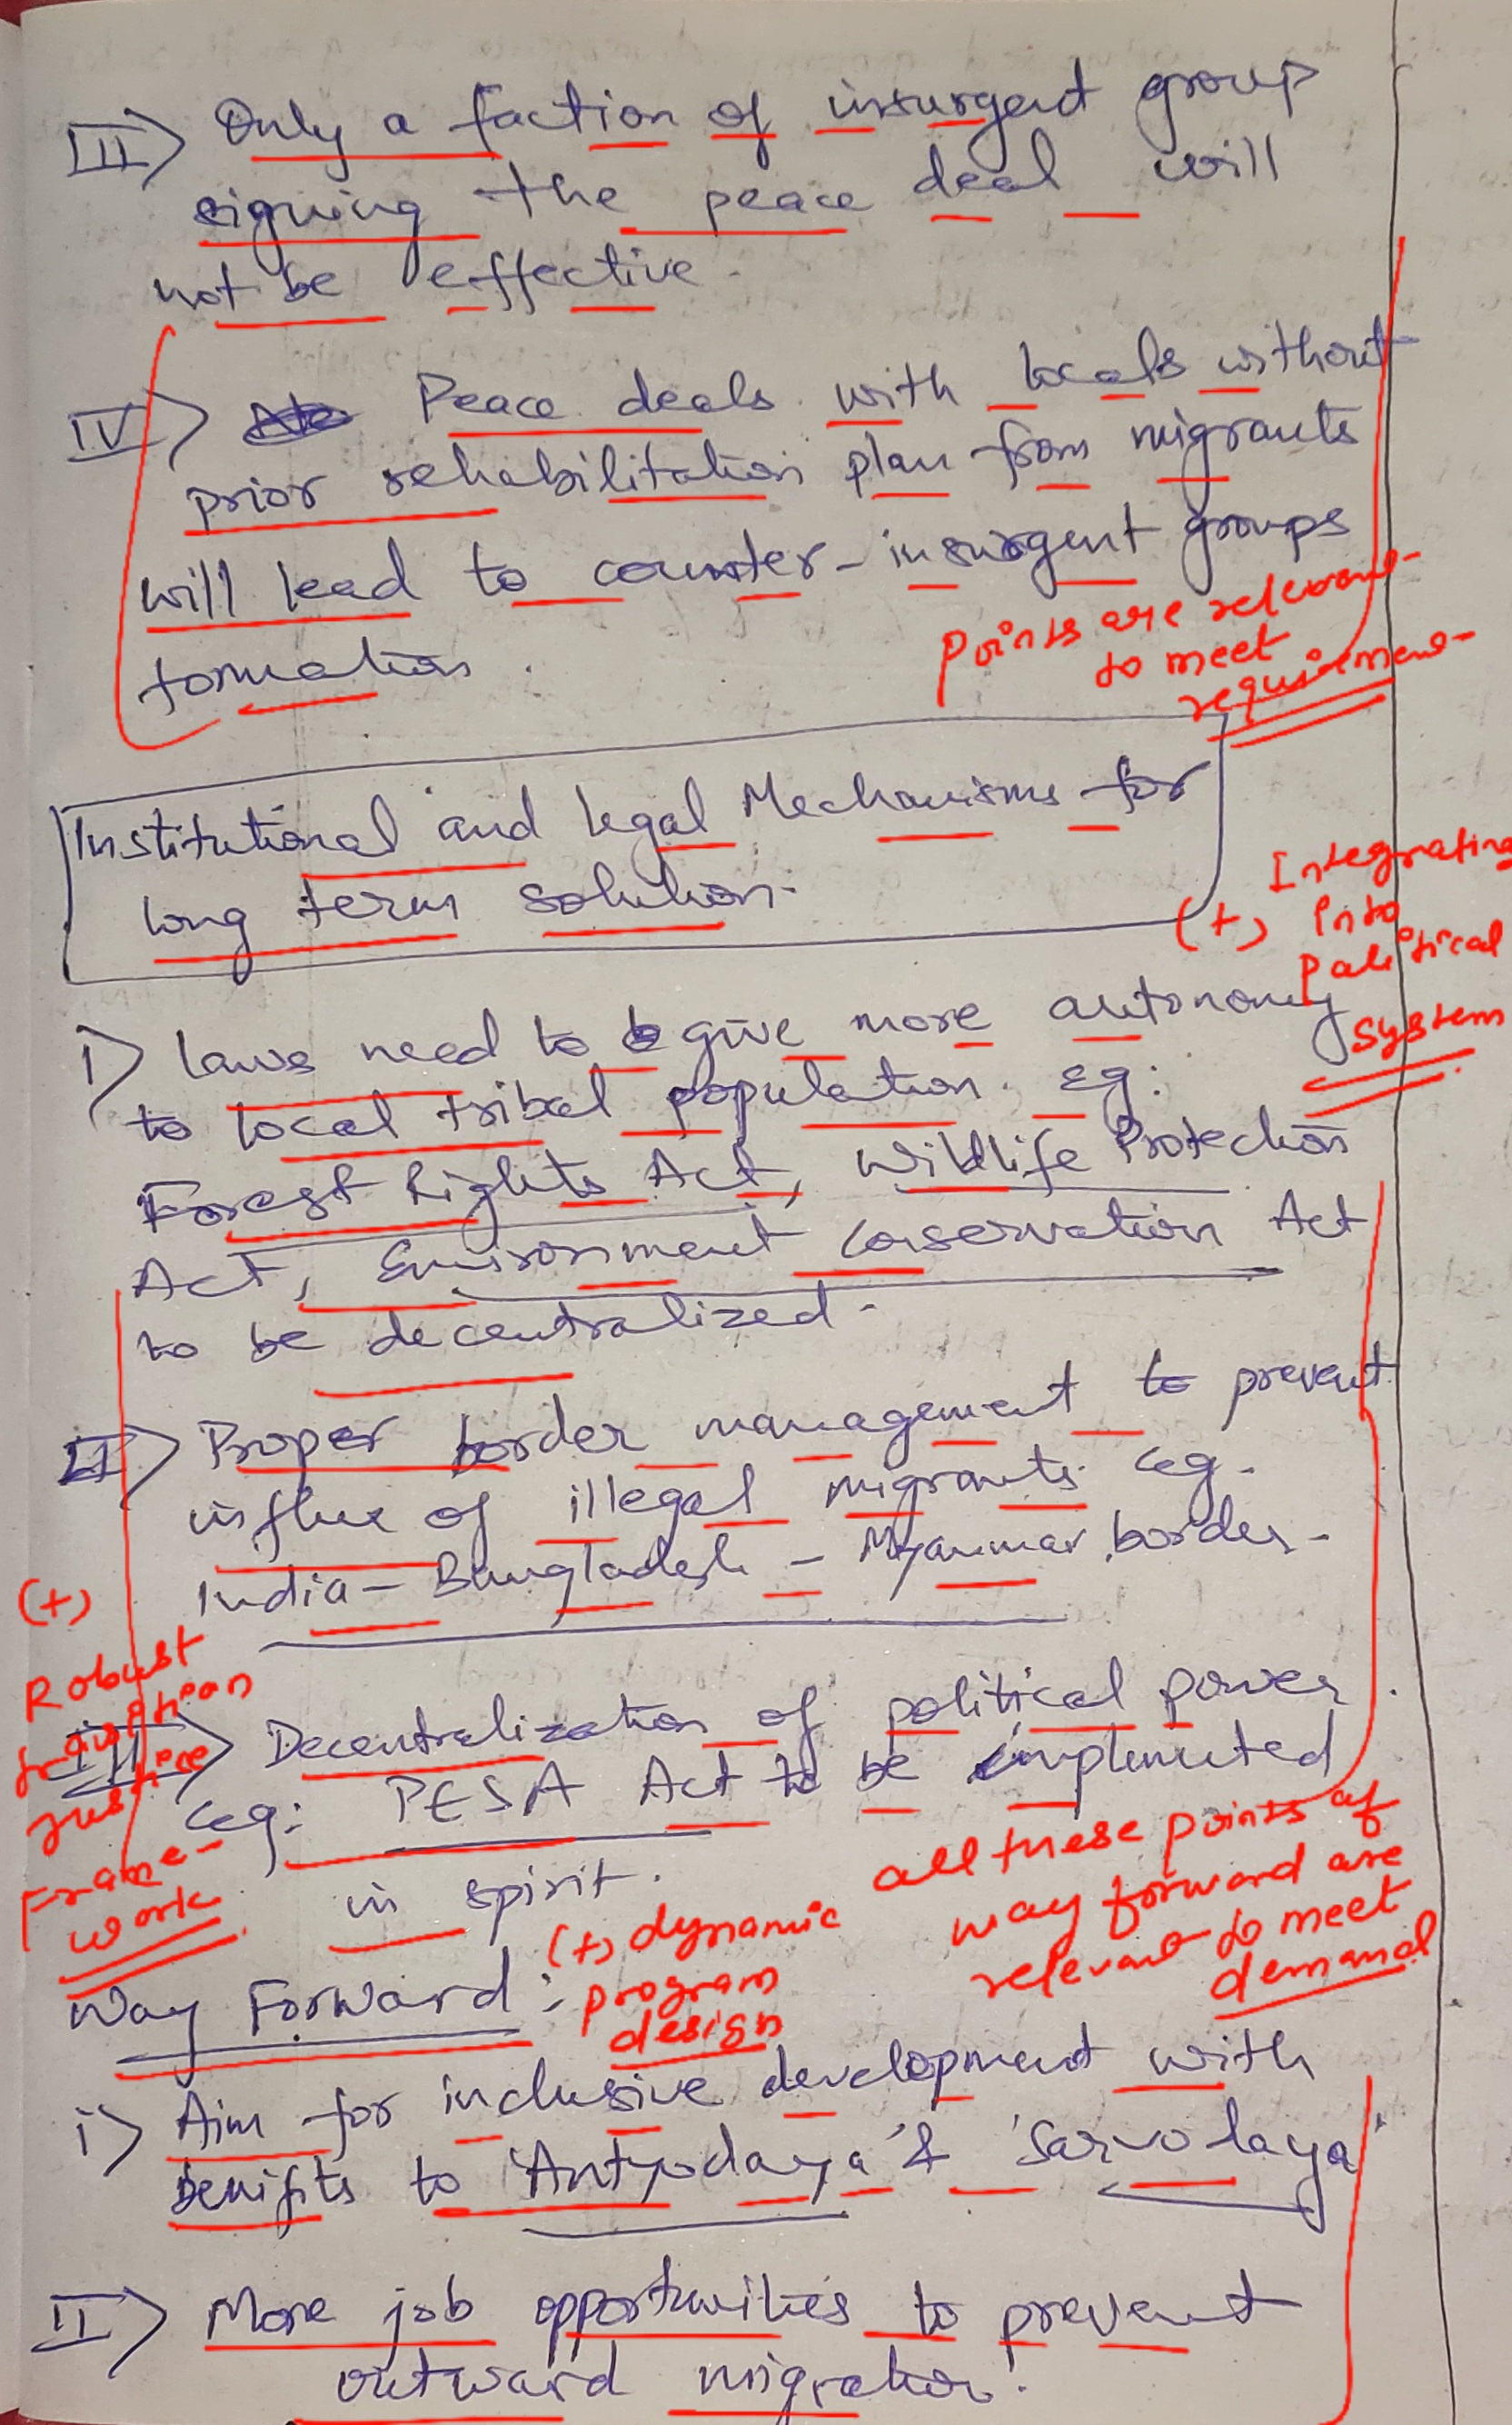 III> Only a faction of insurgent group
signing the peace deal will
not be effective.
IV> Peace deals with locals without
prior rehabilitation plan from migrants
will lead to counter-insurgent groups
formation.
Points are relevant
to meet
requirement
Institutional and legal Mechanisms for
long term solution.
(+) Integrating
into
Political
System
i> Laws need to give more autonomy
to local tribal population. eg:
Forest Rights Act, Wildlife Protection
Act, Environment Conservation Act
to be decentralized.
II> Proper border management to prevent
influx of illegal migrants. eg.
India - Bangladesh - Myanmar border.
(+)
Robust
Justice
Frame-
work
III> Decentralization of political power.
eg: PESA Act to be implemented
in spirit.
all these points of
way forward are
relevant to meet
demand
Way Forward:
(+) dynamic
program
design
i> Aim for inclusive development with
benifits to 'Antyodaya' & 'Sarvodaya'
II> More job opportunities to prevent
outward migration.